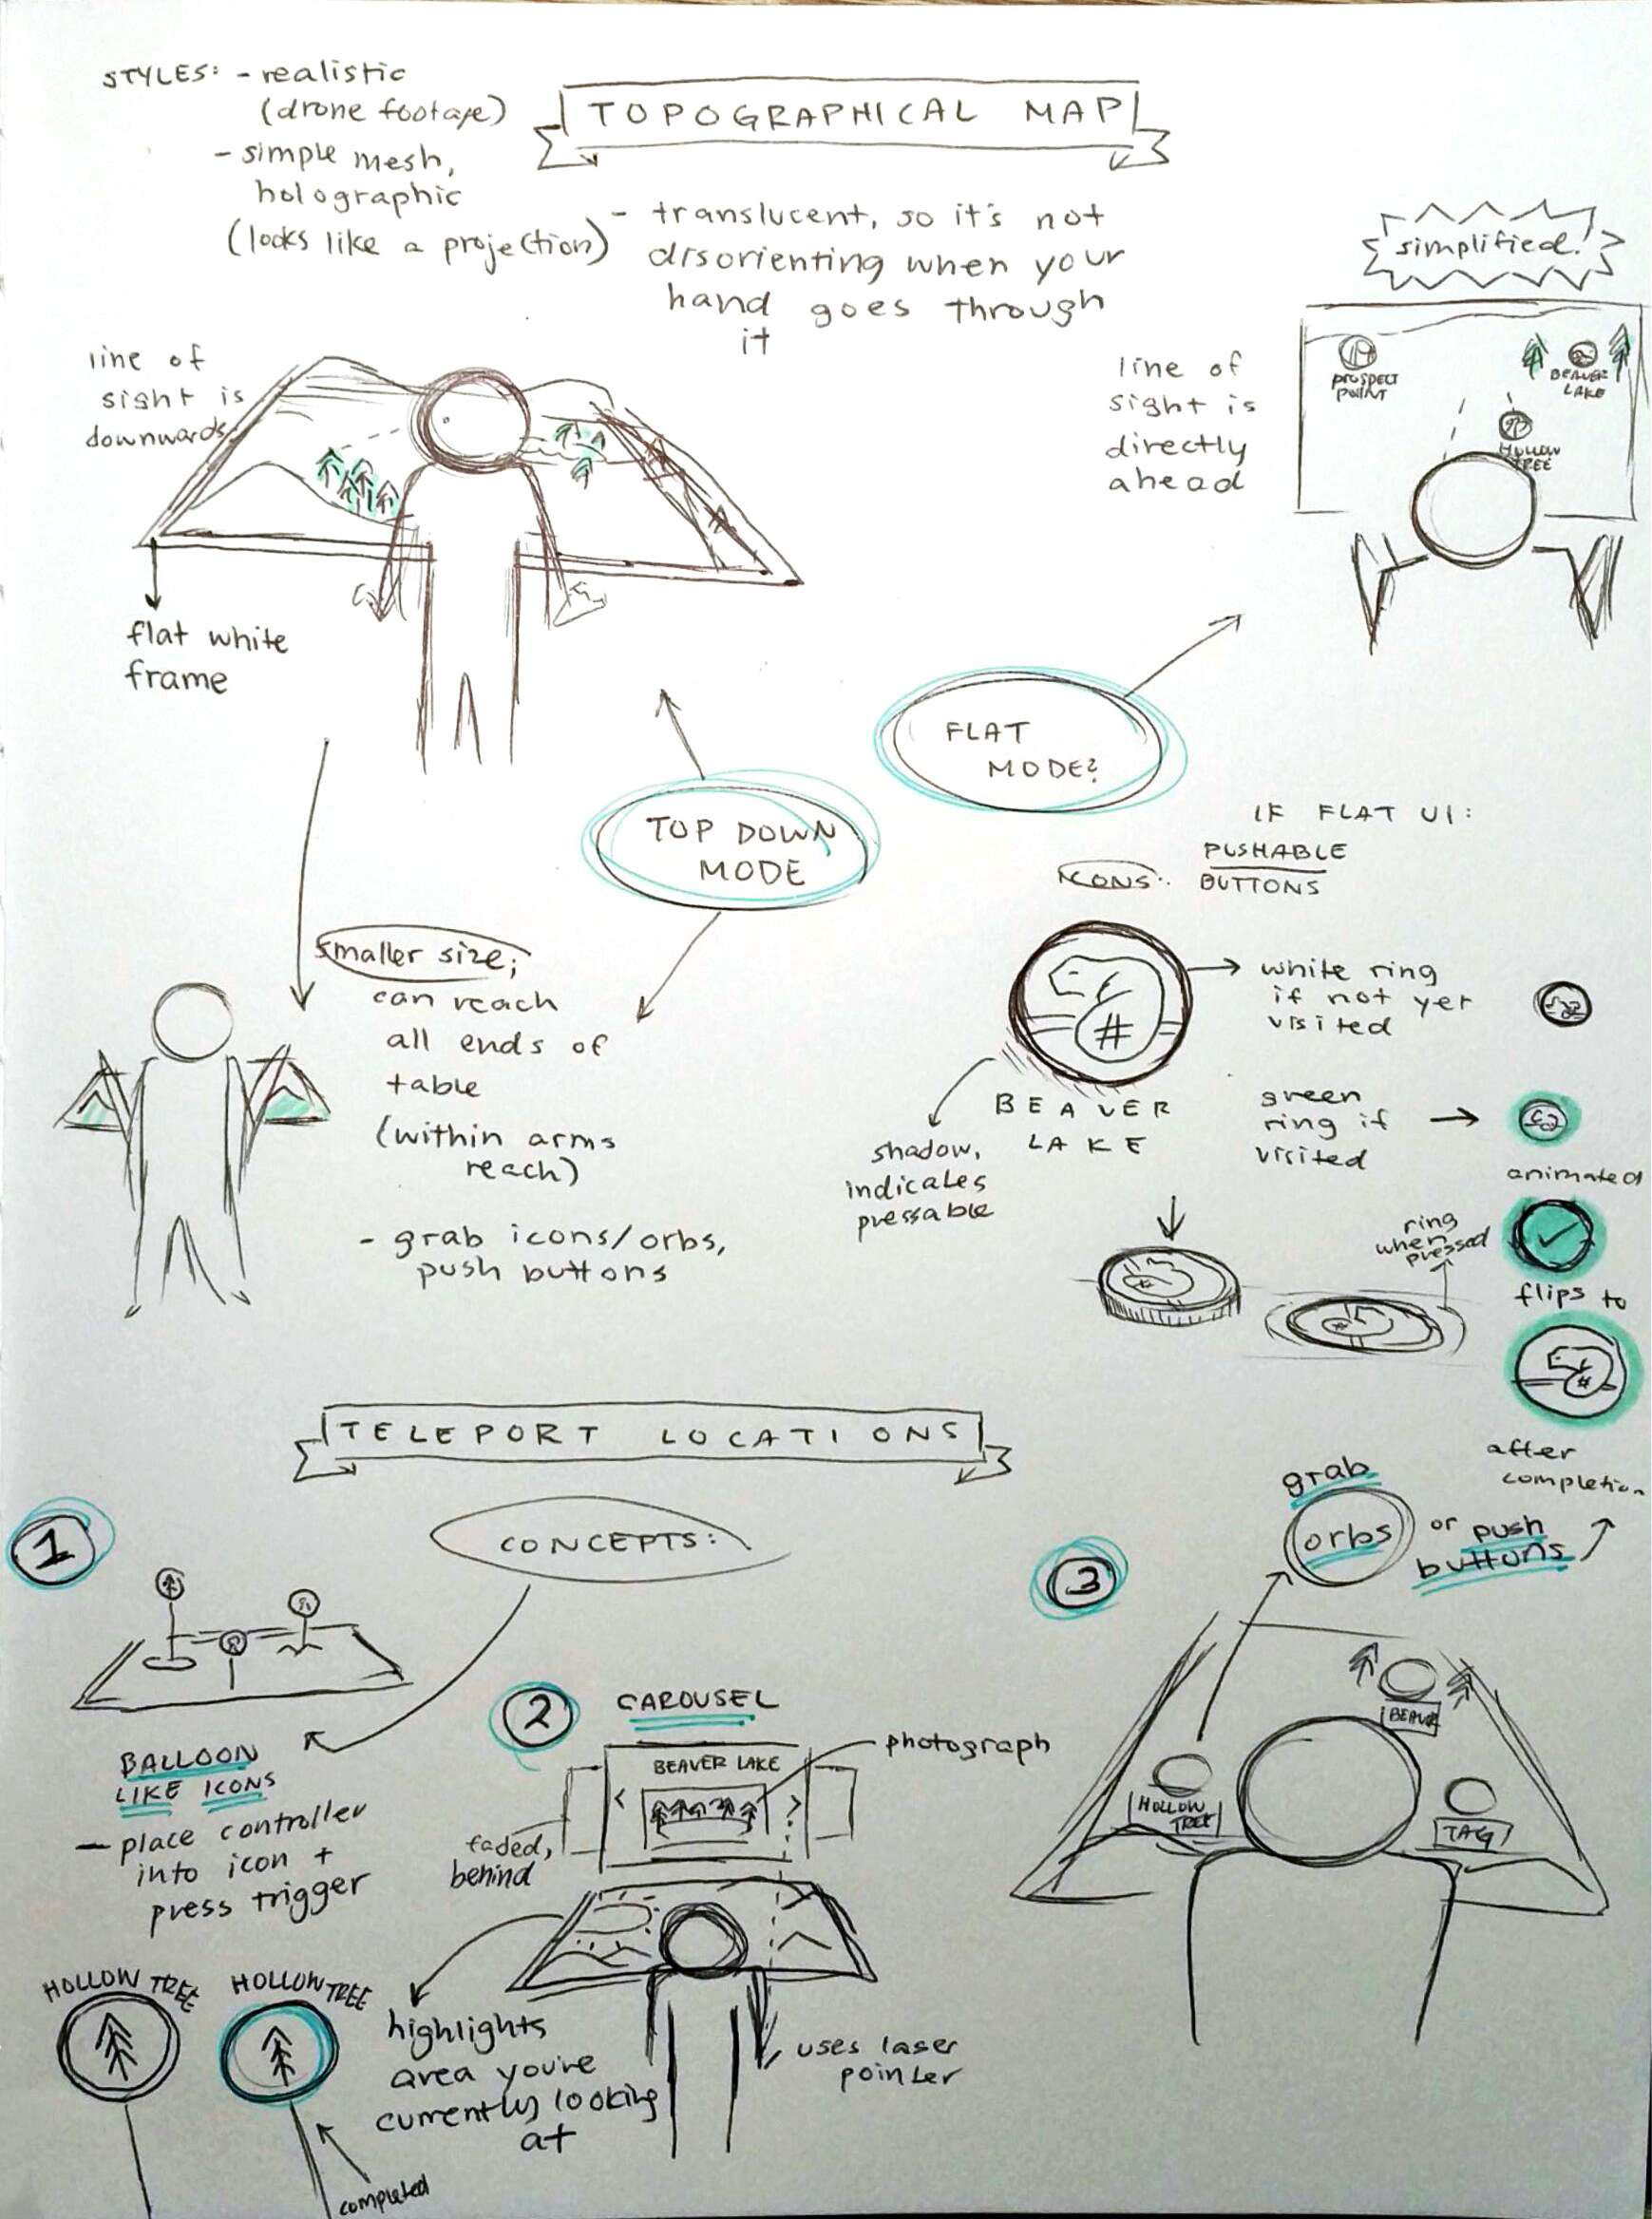 STYLES: - realistic
(drone footage)
- simple mesh,
holographic
(looks like a projection)
TOPOGRAPHICAL MAP
- translucent, so it's not
disorienting when your
hand goes through
it
simplified!
line of
sight is
downwards
line of
sight is
directly
ahead
PROSPECT
POINT
BEAVER
LAKE
HOLLOW
TREE
flat white
frame
FLAT
MODE?
TOP DOWN
MODE
IF FLAT UI:
PUSHABLE
ICONS: BUTTONS
smaller size;
can reach
all ends of
table
(within arms
reach)
- grab icons/orbs,
push buttons
#
BEAVER
LAKE
white ring
if not yet
visited
green
ring if
visited
shadow,
indicates
pressable
animated
ring
when
pressed
flips to
#
after
completion
TELEPORT LOCATIONS
CONCEPTS:
1
BALLOON
LIKE ICONS
- place controller
into icon +
press trigger
HOLLOW TREE
HOLLOW TREE
completed
2
CAROUSEL
BEAVER LAKE
< >
photograph
faded,
behind
highlights
area you're
currently looking
at
uses laser
pointer
3
grab
orbs or push
buttons
BEAVE
HOLLOW
TREE
TAG